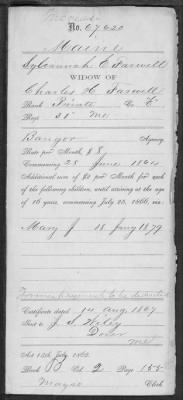 Increase
No. 67620
Maine
Sylvannah E. Farwell
WIDOW OF
Charles H. Farwell
Rank Private Co. E
Regt 31" Me
Bangor Agency
Rate per Month, $8
Commencing 28 June 1864
Additional sum of $2 per Month for each
of the following children, until arriving at the age
of 16 years, commencing July 25, 1866, viz:
Mary J 18 Jany 1879
Former payments to be deducted
Certificate dated 14 Aug 1867
Sent to J. S. Wiley
Dover
Me
Act 14th July, 1862.
Book B Vol. 2 Page 155
Clerk